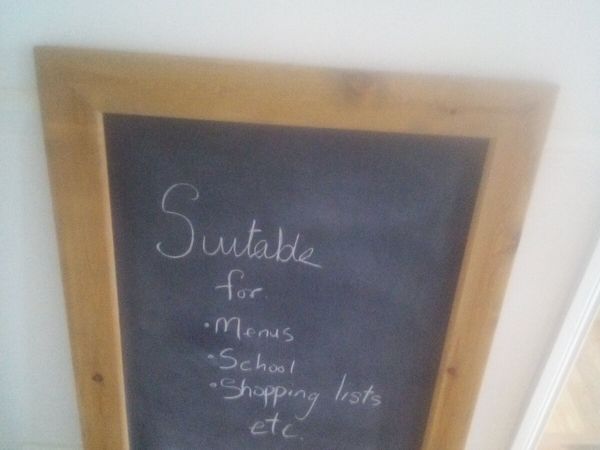 Suitable
for.
• Menus
• School
• Shopping lists
etc.